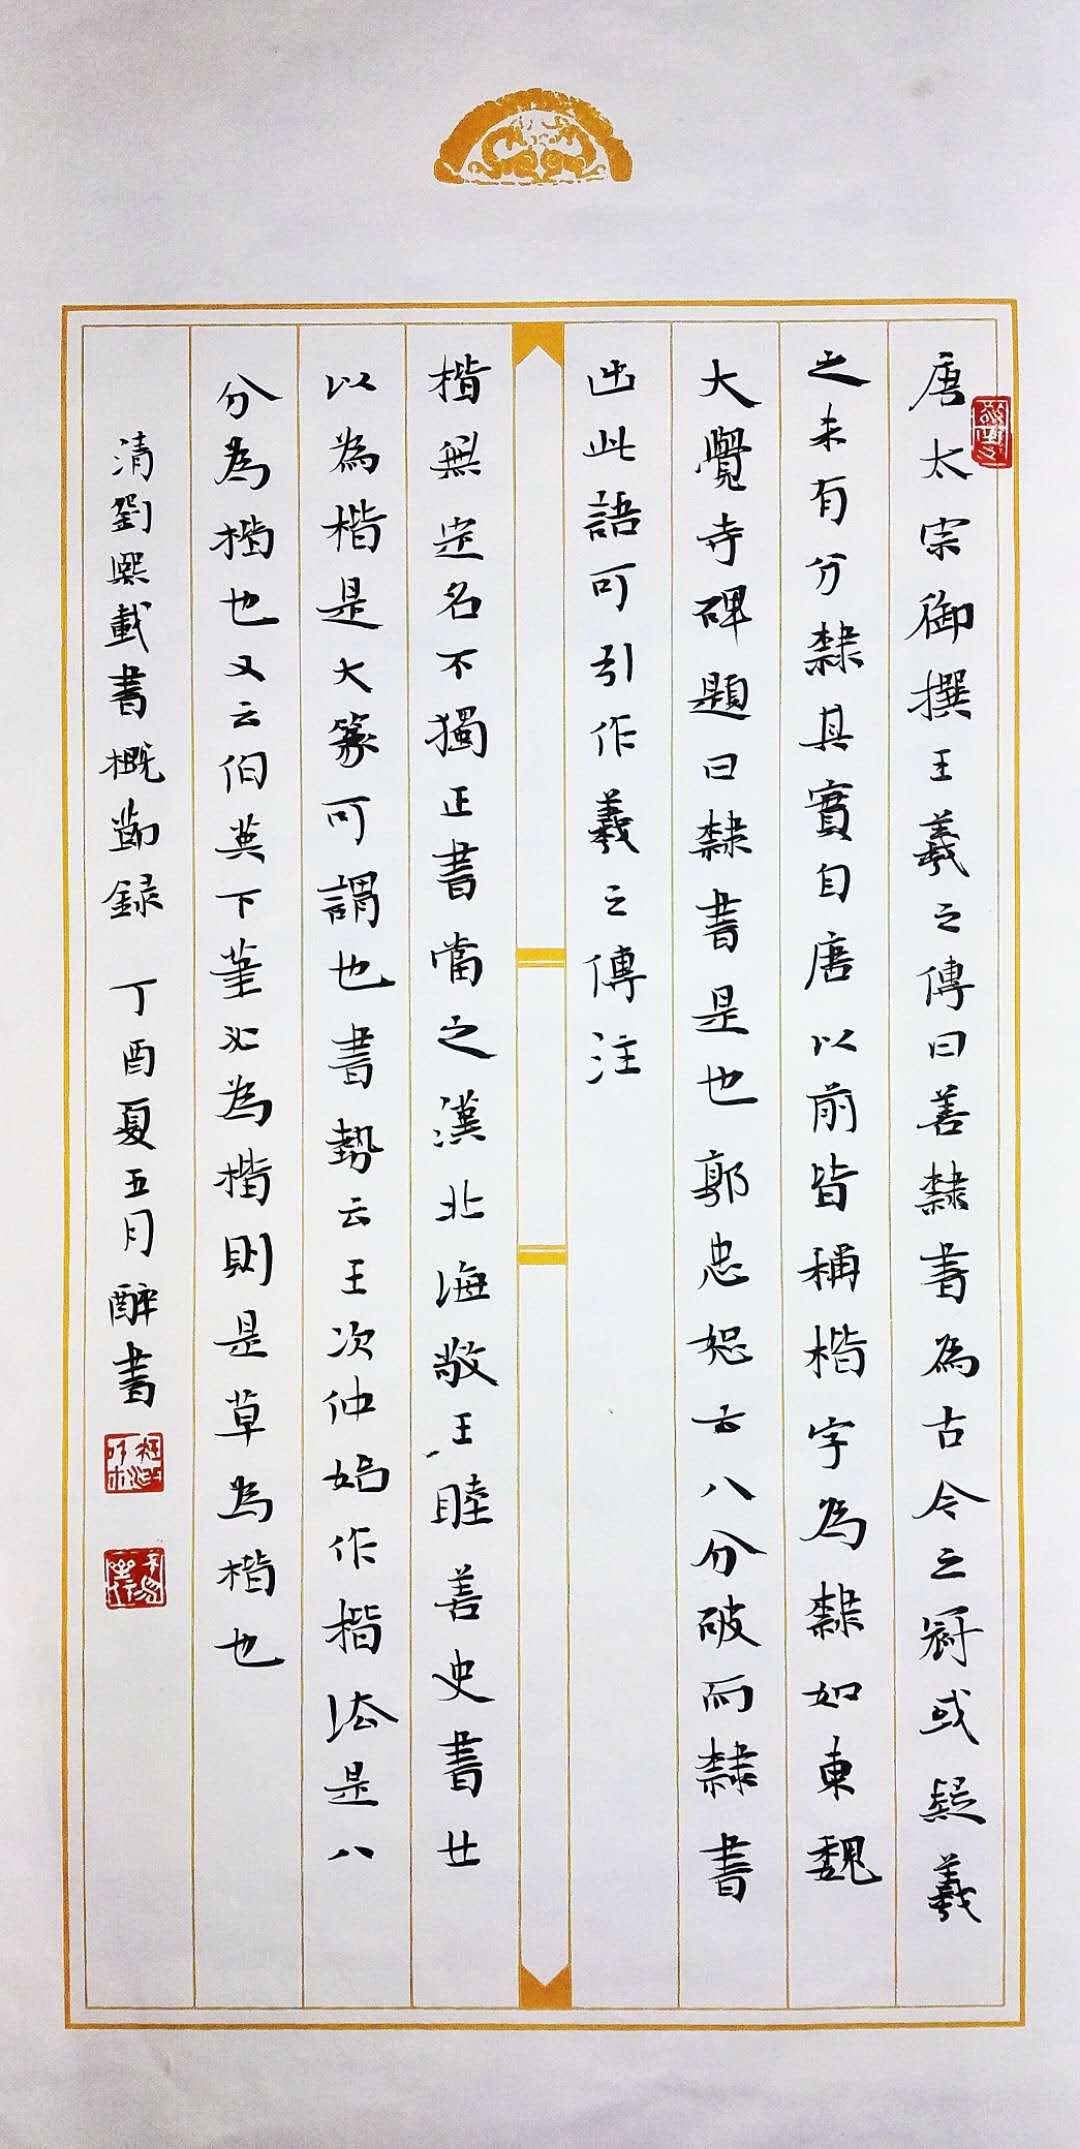 唐太宗御撰王羲之傳曰善隸書為古今之冠或疑羲
之未有分隸其實自唐以前皆稱楷字為隸如東魏
大覺寺碑題曰隸書是也郭忠恕云八分破而隸書
出此語可引作羲之傳注
楷無定名不獨正書當之漢北海敬王睦善史書世
以為楷是大篆可謂也書勢云王次仲始作楷法是八
分為楷也又云伯英下筆必為楷則是草為楷也
清劉熙載書概節録 丁酉夏五月 醉書